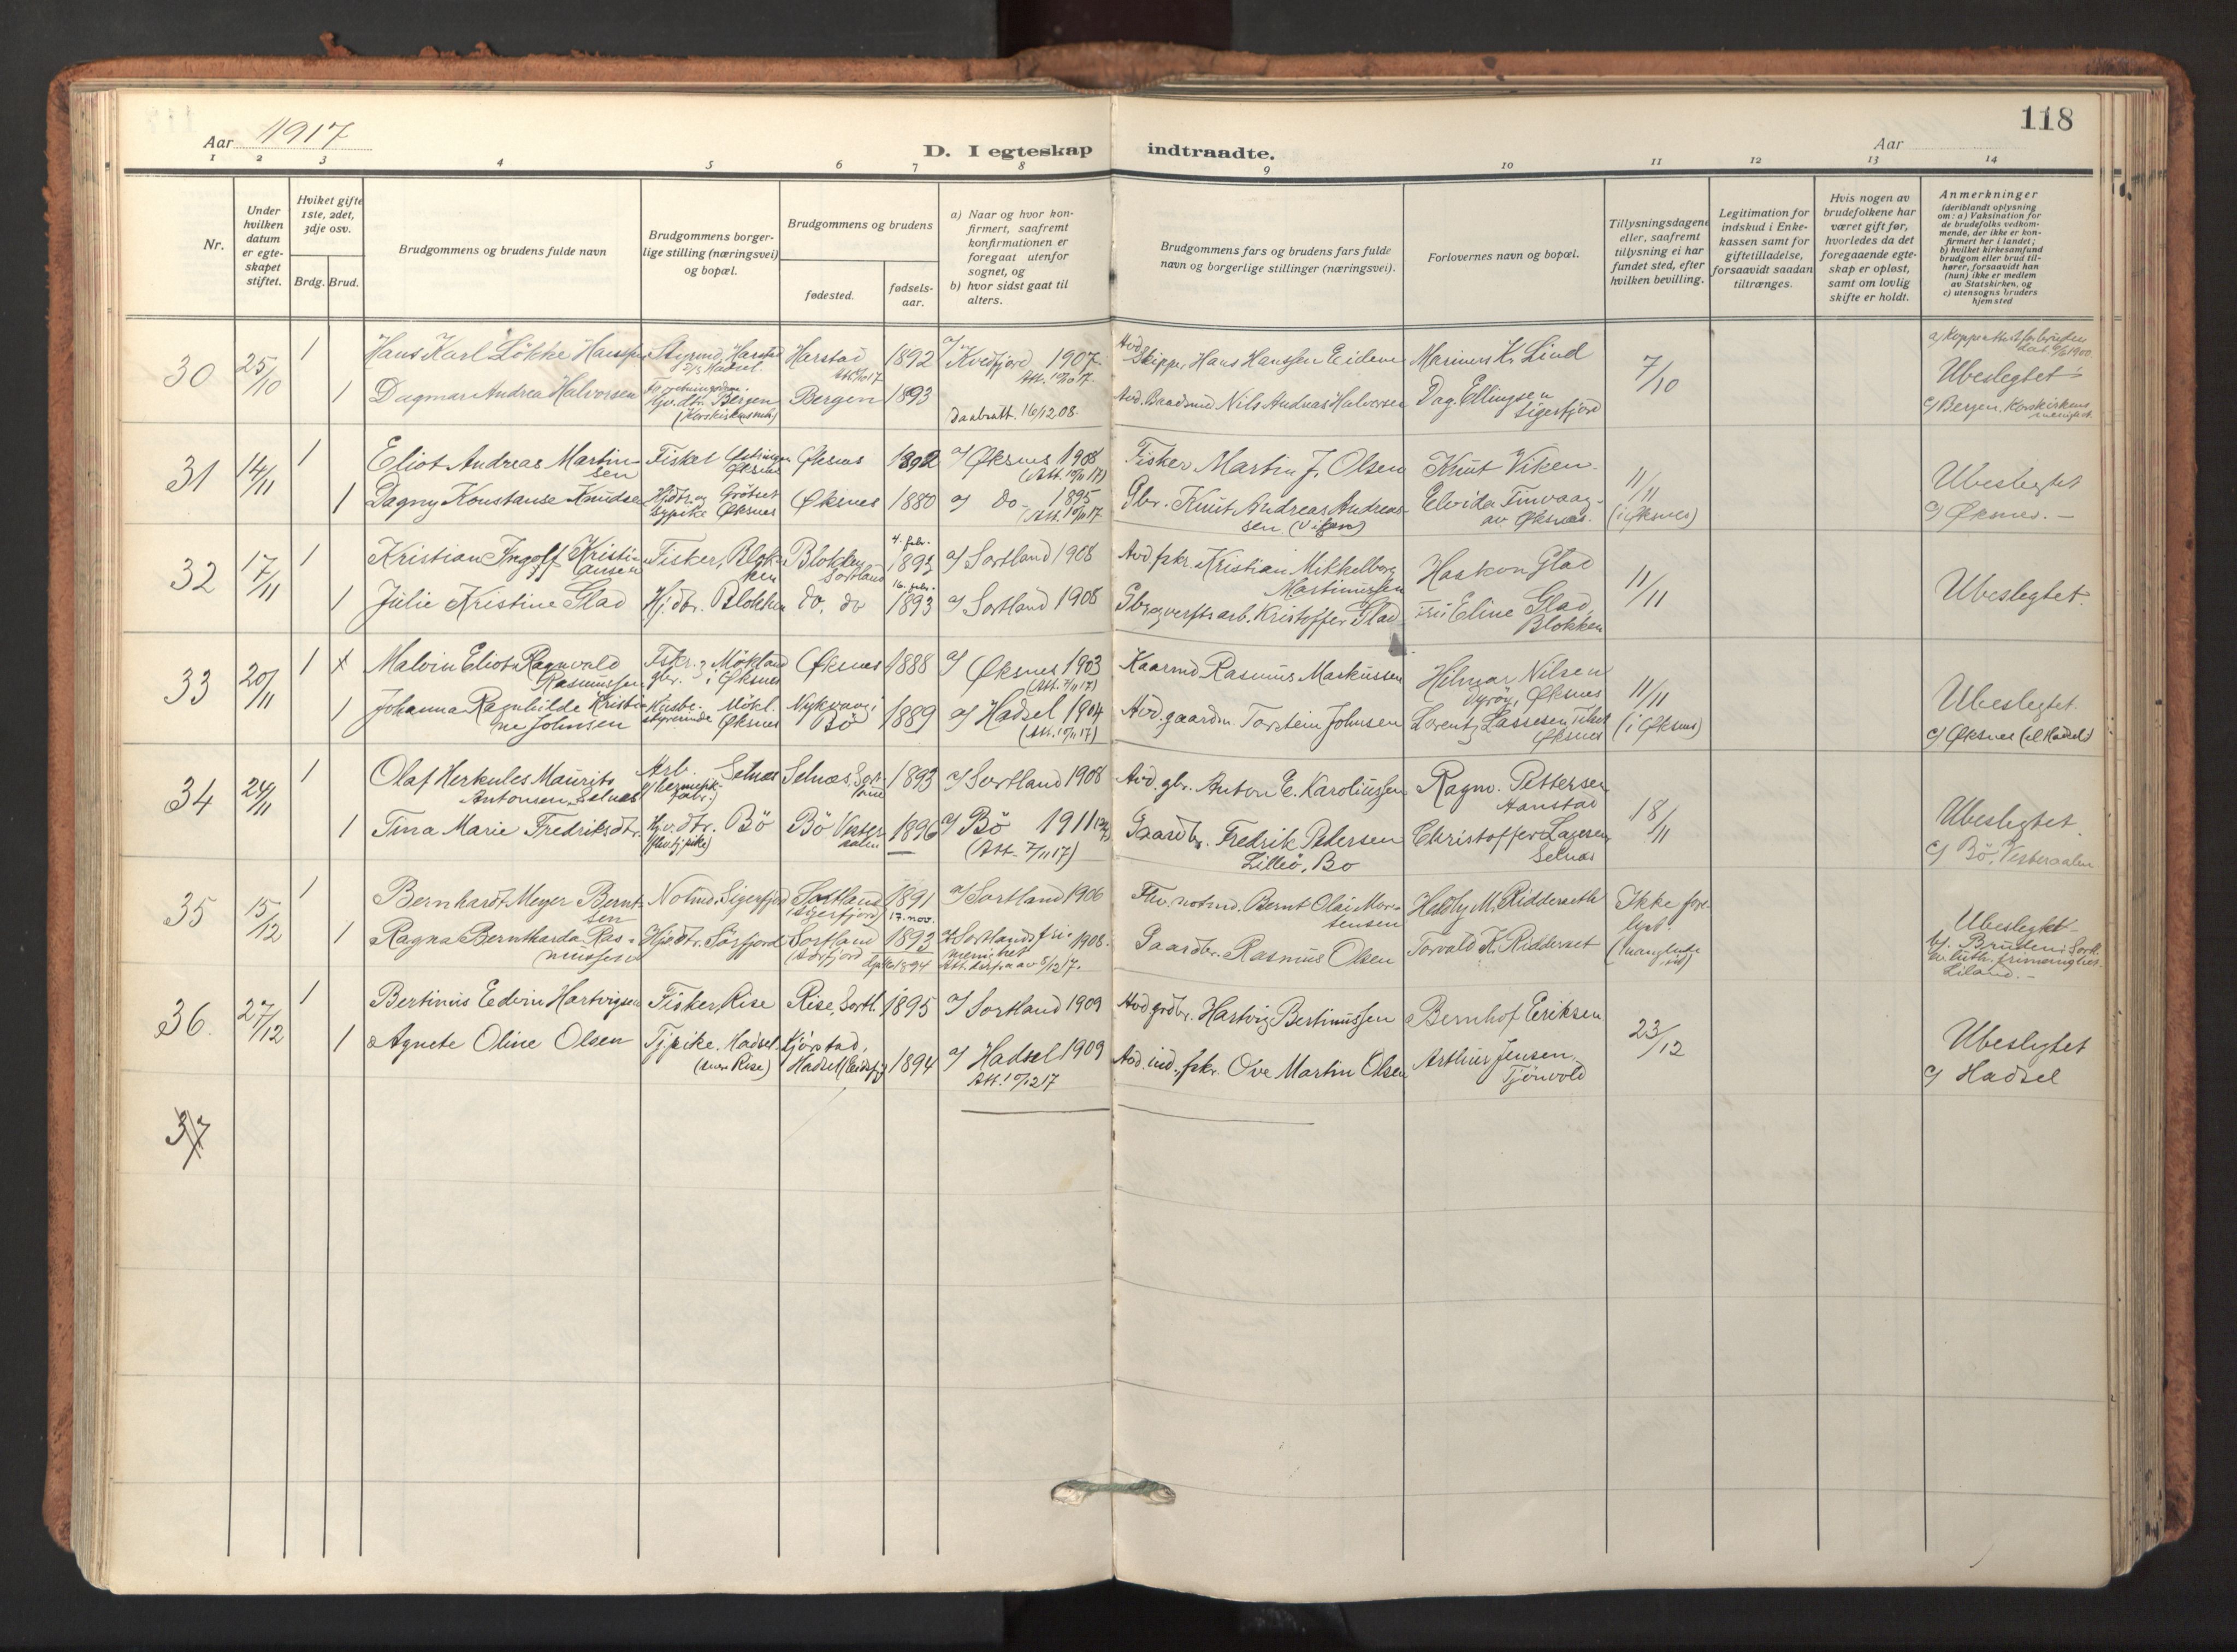 118
Aar 1917
D. I egteskap indtraadte.
Aar
1 2 3 4 5 6 7 8 9 10 11 12 13 14
Nr.
Under hvilken datum er egteskapet stiftet.
Hviket gifte 1ste, 2det, 3dje osv.
Brdg. Brud.
Brudgommens og brudens fulde navn
Brudgommens borgerlige stilling (næringsvei) og bopæl.
Brudgommens og brudens
fødested.
fødselsaar.
a) Naar og hvor konfirmert, saafremt konfirmationen er foregaat utenfor sognet, og
b) hvor sidst gaat til alters.
Brudgommens fars og brudens fars fulde navn og borgerlige stillinger (næringsvei).
Forlovernes navn og bopæl.
Tillysningsdagene eller, saafremt tillysning ei har fundet sted, efter hvilken bevilling.
Legitimation for indskud i Enkekassen samt for giftetilladelse, forsaavidt saadan tiltrænges.
Hvis nogen av brudefolkene har været gift før, hvorledes da det foregaaende egteskap er opløst, samt om lovlig skifte er holdt.
Anmerkninger (deriblandt oplysning om: a) Vaksination for de brudefolks vedkommende, der ikke er konfirmert her i landet; b) hvilket kirkesamfund brudgom eller brud tilhører, forsaavidt han (hun) ikke er medlem av Statskirken, og c) utensogns bruders hjemsted
30 25/10 1 Hans Karl Løkke Hanssen Styrmd. Harstad Harstad 1892 a/ Kvedfjord 1907 Avd. Skipper Hans Hanssen Eidem Marinus K. Lind 7/10
1 Dagmar Andrea Halvorsen Hjv. dtr. Bergen Bergen 1893 Daabsatt. 16/12 08. Avd. Baadsmd Nils Andreas Halvorsen Dag. Ellingsen Sigerfjord Ubeslegtet c/ Bergen, Korskirkens
31 14/11 1 Eliot Andreas Martinsen Fisker Øksnes Øksnes 1892 a/ Øksnes 1908 (Att. 10/11 17) Fisker Martin J. Olsen Knut Viken 11/11 (i Øksnes) Ubeslegtet
1 Dagny Konstanse Knudsen Hjdtr. og sypike Grøtset Øksnes Øksnes 1880 a/ do 1895 (Att. 10/11 17 Gbr. Knut Andreas Andreassen (Viken) Elvida Finvaag av Øksnes. c/ Øksnes. —
32 17/11 1 Kristian Ingolf Kristiansen Fisker, Blokken Blokken Sortland 4. febr. 1893 a/ Sortland 1908 Avd fskr. Kristian Mikkelborg Martinussen Haakon Glad 11/11 Ubeslegtet.
1 Julie Kristine Glad Hj. dtr. Blokken do, do 16. febr. 1893 a/ Sortland 1908 Gbr og verftsarb. Kristoffer Glad Fru Eline Glad, Blokken
33 20/11 1 Malvin Eliot Ragnvald Rasmussen Fskr. og gbr. Mökland i Øksnes Øksnes 1888 a/ Øksnes 1903 (Att. 7/11 17) Kaarmd Rasmus Markussen Hilmar Nilsen Dyrøy, Øksnes 11/11 (i Øksnes) Ubeslegtet.
1 Johanna Ragnhilde Kristine Johnsen Husbestyrerinde Mökl. Øksnes Nykvaag i Bö 1889 a/ Hadsel 1904 (Att. 10/11 17) Avd. gaardm. Torstein Johnsen Lorentz Lassesen Øksnes c/ Øksnes (el Hadsel)
34 24/11 1 Olaf Herkules Maurits Antonsen Selnes Arb. Selnæs Selnæs, Sortland 1893 a/ Sortland 1908 Avd. gbr. Anton E. Karoliussen Ragnv. Pettersen Hanstad 18/11 Ubeslegtet.
1 Tina Marie Fredriksdtr. Hjv. dtr. Bö Bö Vesteraalen 1896 a/ Bö 1911 (Att. 7/11 17) Gaardbr. Fredrik Pedersen Lilleö, Bo Christoffer Lagesen Selnæs c/ Bö, Vesteraalen
35 15/12 1 Bernhardt Meyer Berntsen Notmd. Sigerfjord Sortland (Sigerfjord) 1891 a/ Sortland 1906 Fhv. notmd. Bernt Olai Mortensen Heldly M. Ridderseth Ikke forelyst. Ubeslegtet
1 Ragna Berntharda Rasmussen Hjdtr. Sörfjord Sortland (Sörfjord 17. nov. 1893 Sortlands frimenighet 1908. Gaardbr. Rasmus Olsen Torvald K. Ridderset b/. Bruden: Sortl. ev. luth. frimenighet. Liland. —
36. 27/12 1 Bertinius Edvin Hartvigsen Fisker, Rise Rise, Sortl. 1895 a/ Sortland 1909 Avd grdbr. Hartvig Bertinussen Bernhof Eriksen 23/12 Ubeslegtet
1 Agnete Oline Olsen Tjpike. Hadsel (nu Rise) Kjörstad, Hadsel 1894 a/ Hadsel 1909 Att. 10/12 17 Avd. ind., fskr. Ove Martin Olsen Arthur Jensen, Tjönvold c/ Hadsel
37